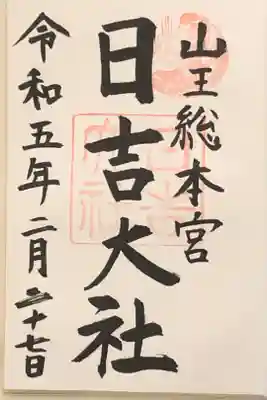 山王総本宮
日吉大社
令和五年二月二十七日